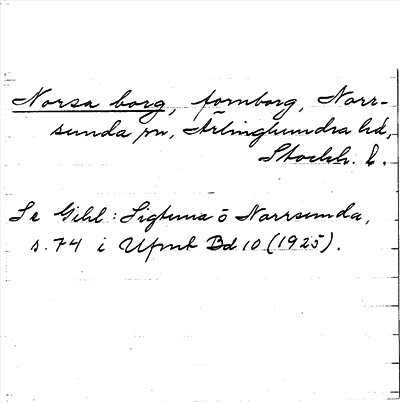 Norsa borg, fornborg, Norr-
sunda sn, Ärlinghundra hd,
Stockh. l.
Se Gihl: Sigtuna o Norrsunda,
s. 74 i Ufmt Bd 10 (1925).